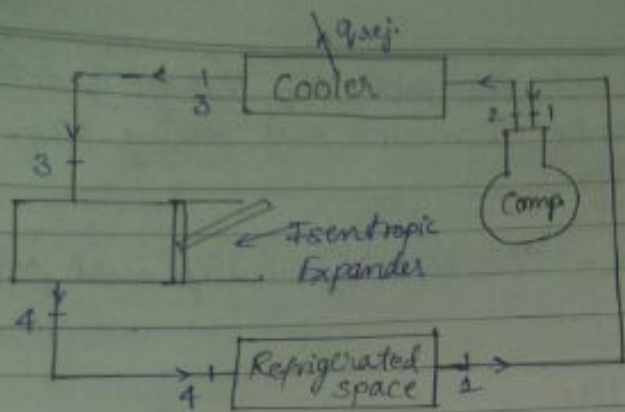 qrej.
Cooler
3
2
1
3
Comp.
Isentropic
Expander
4
4
Refrigerated
space
1